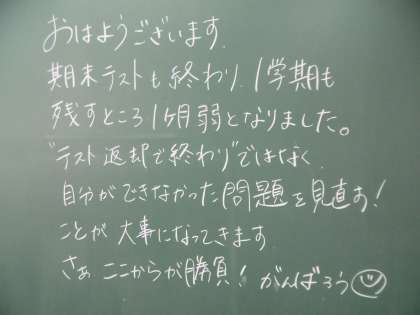 おはようございます.
期末テストも終わり、1学期も
残すところ1ヶ月弱となりました。
"テスト返却で終わり"ではなく、
自分ができなかった問題を見直す!
ことが大事になってきます
さぁ ここからが勝負! がんばろう